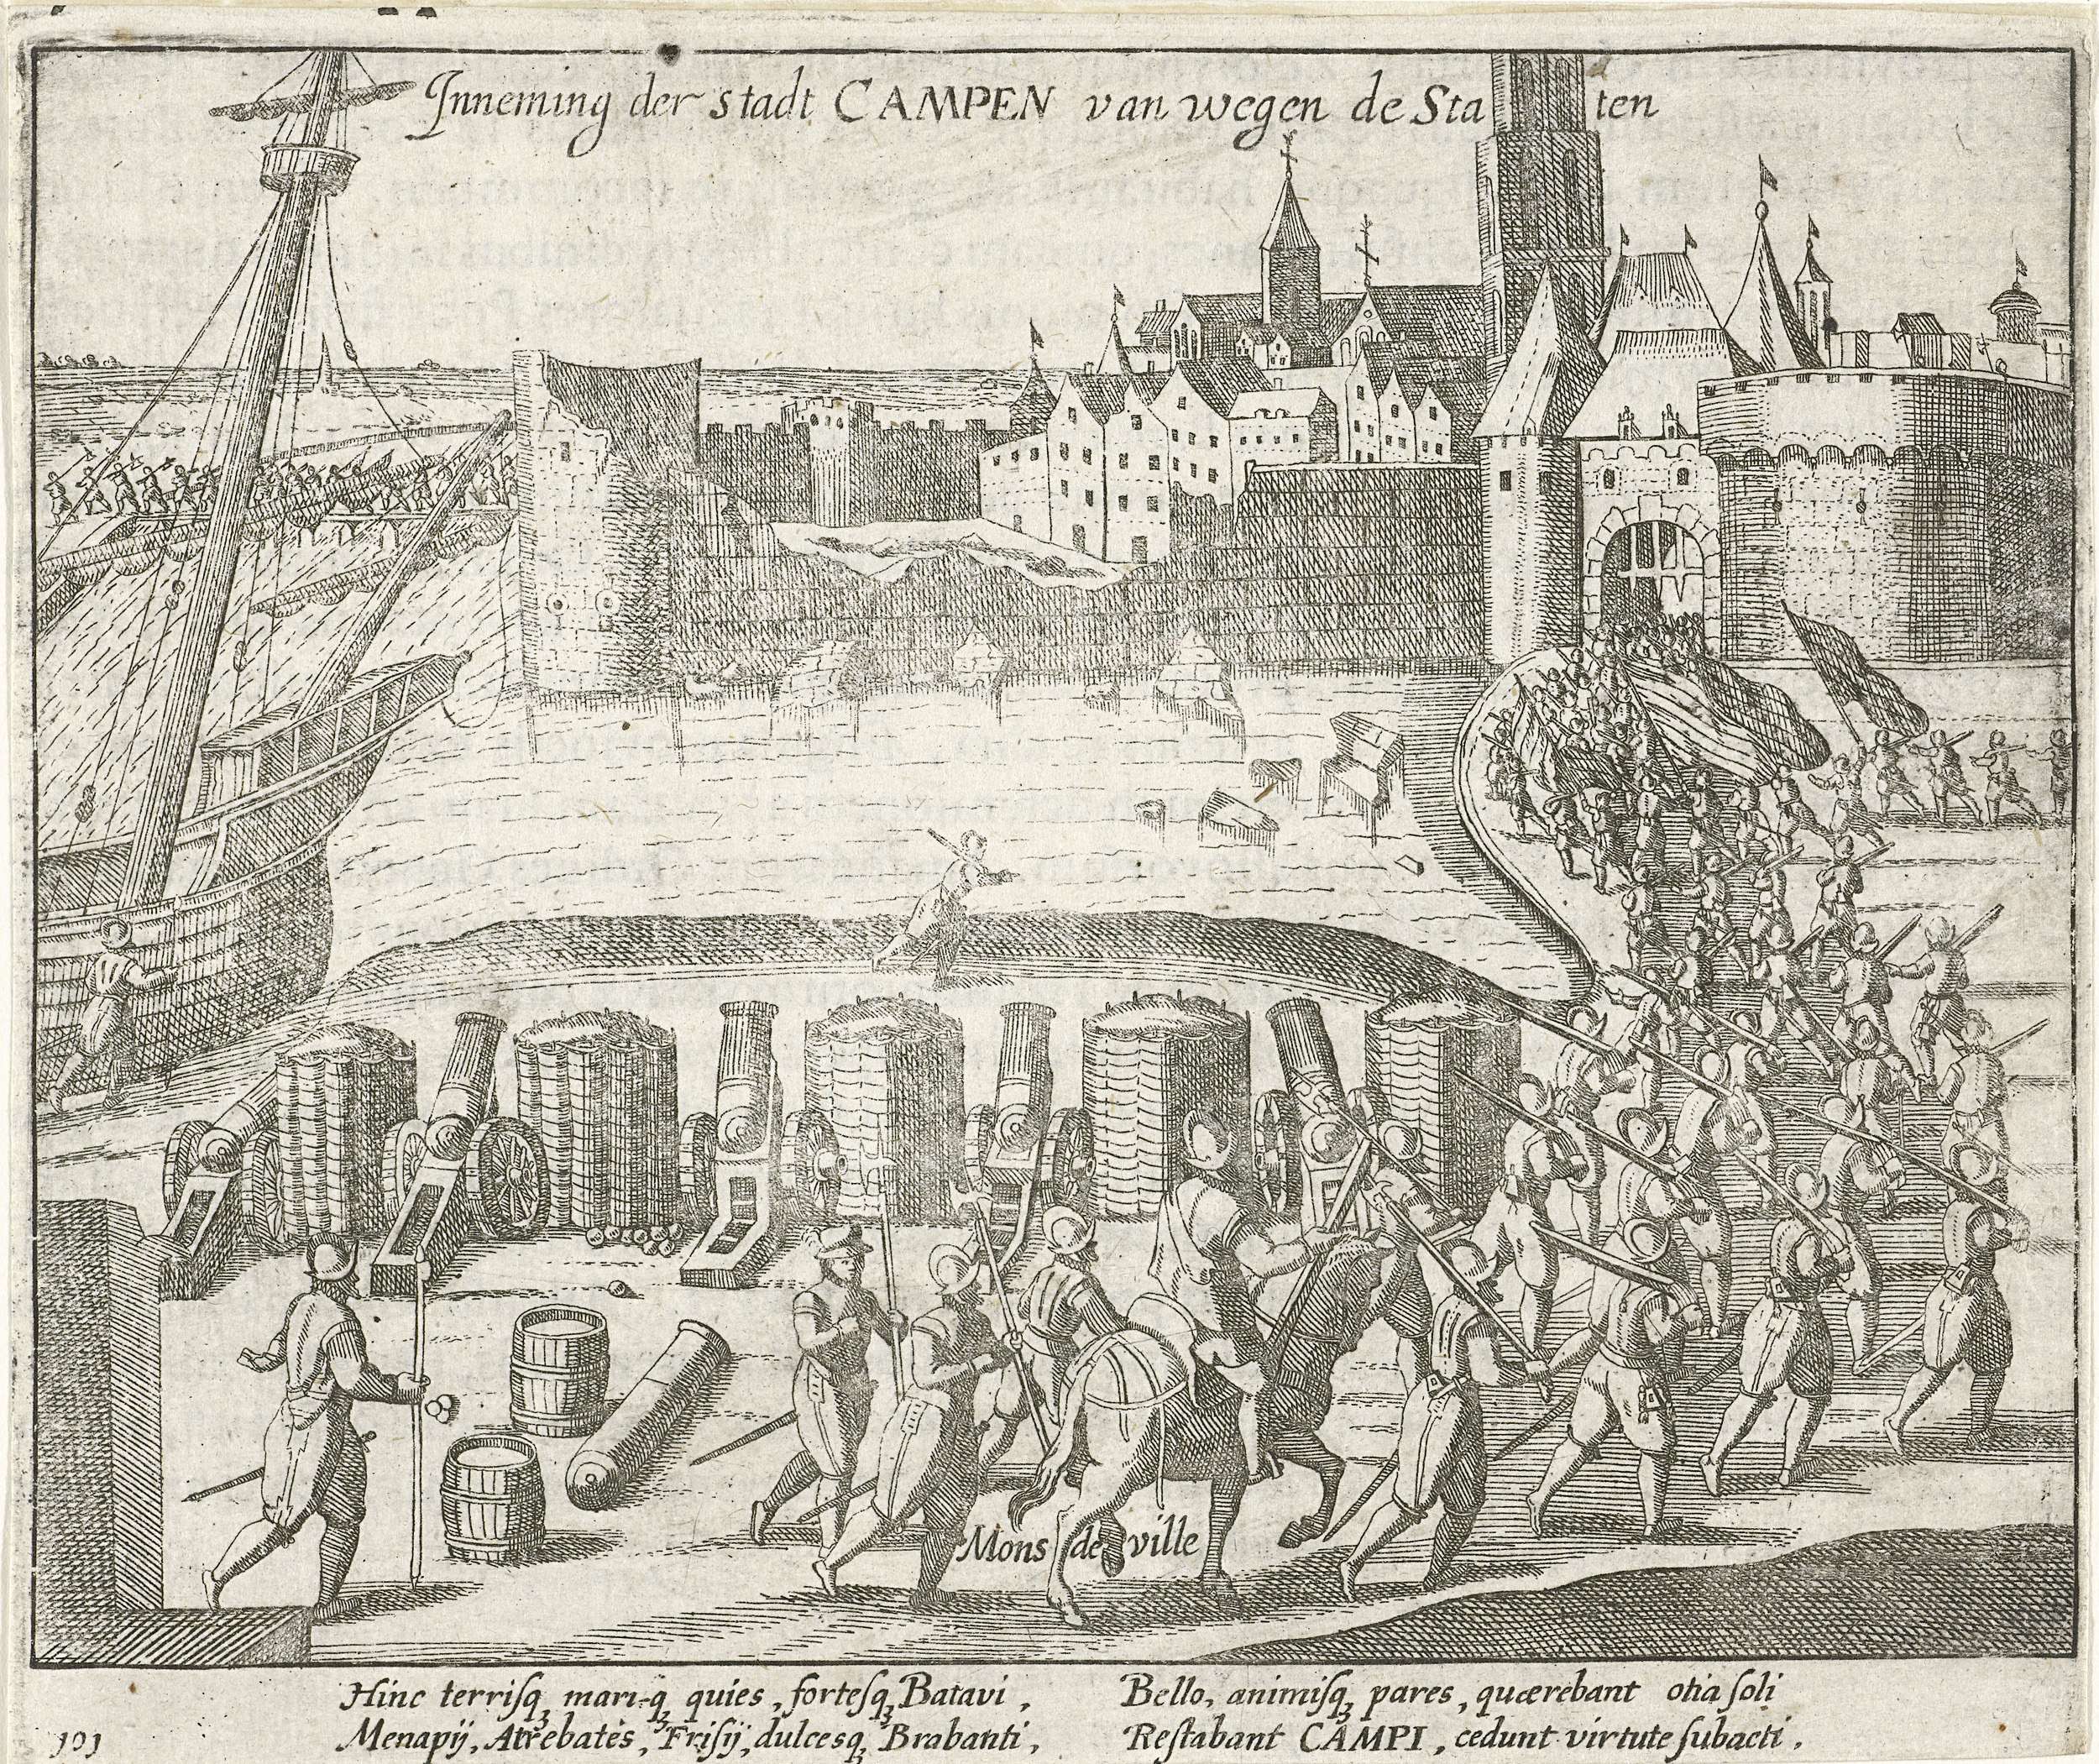 Inneming der stadt CAMPEN van wegen de Sta ten
Mons de ville
Hinc terrisq₃ mari-q₃ quies, fortesq₃ Batavi,
Menapij, Atrebates, Frisij, dulcesq₃ Brabanti,
Bello, animisq₃ pares, quærebant otia soli
Restabant CAMPI, cedunt virtute subacti.
101